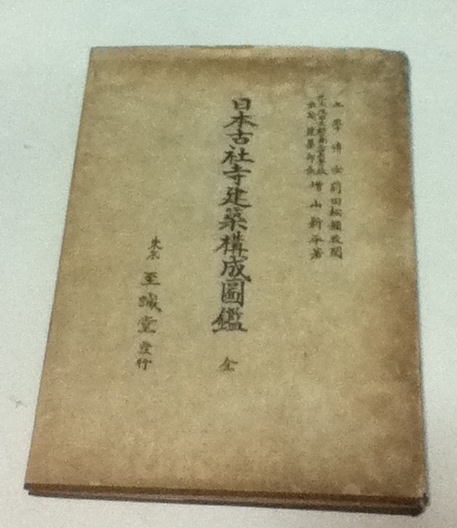 工學博士 前田松韻校閲
増山新平著
日本古社寺建築構成圖鑑 全
東京 至誠堂發行